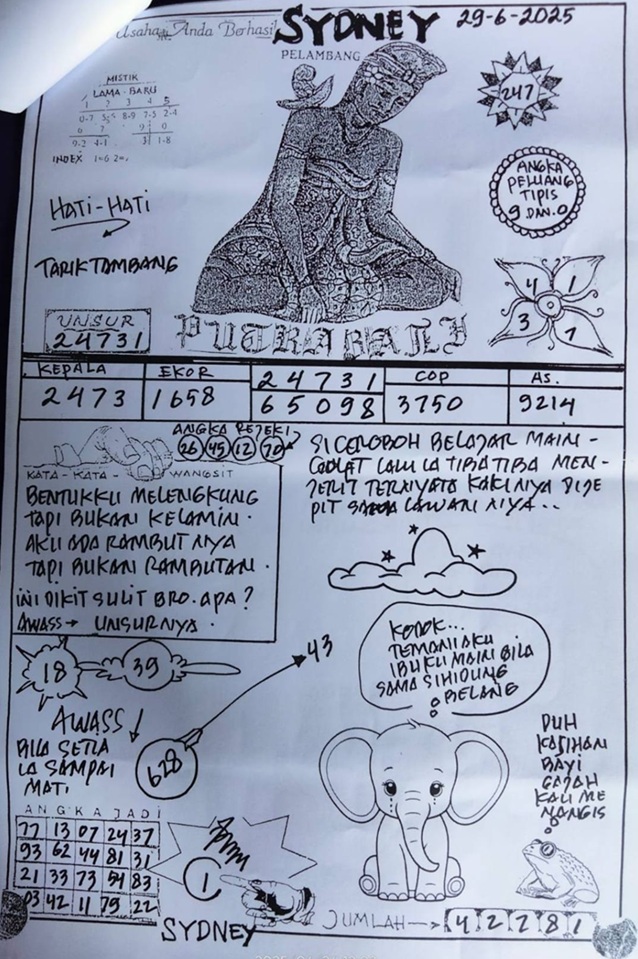 Usaha Anda Berhasil
SYDNEY
29-6-2025
PELAMBANG
MISTIK
LAMA - BARU
1 2 3 4 5
0-7 8-9 7-5 2-4
6 7 9 0
9-2 4-1 3 1-8
INDEX 1=6
247
ANGKA
PELUANG
TIPIS
9 DAN 0
HATI-HATI
TARIK TAMBANG
4 1
3 7
UNSUR
24731
PUTRA BALI
KEPALA
2473
EKOR
1658
24731
65098
COP
3750
AS.
9214
ANGKA REJEKI
26 45 12 70
KATA - KATA - WANGSIT
BENTUKKU MELENGKUNG
TAPI BUKAN KELAMIN.
AKU ADA RAMBUTNYA
TAPI BUKAN RAMBUTAN.
INI DIKIT SULIT BRO. APA?
AWASS → UNSURNYA.
SI CEROBOH BELAJAR MAIN -
LALU IA TIBA TIBA MEN -
JERIT TERNYATA KAKINYA DIJE
PIT SAMA LAWAN NYA..
18 39
43
KODOK...
TEMANI AKU
IBUKU MAIN BILA
SAMA SI HIDUNG
BELANG
AWASS
BILA SETIA
IA SAMPAI
MATI
628
DUH
KASIHAN
BAYI
GAJAH
KALI ME
NANGIS
ANGKA JADI
77 13 07 24 37
93 62 44 81 31
21 33 73 54 83
03 42 11 75 22
1
SYDNEY
JUMLAH → 4 2 2 8 1